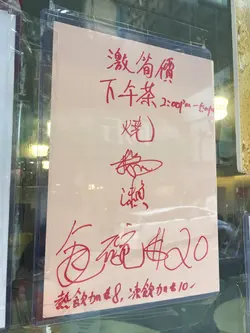 激筍價
下午茶 2:00PM-6PM
燒
瀨
每碗$20
熱飲加$8，凍飲加$10-